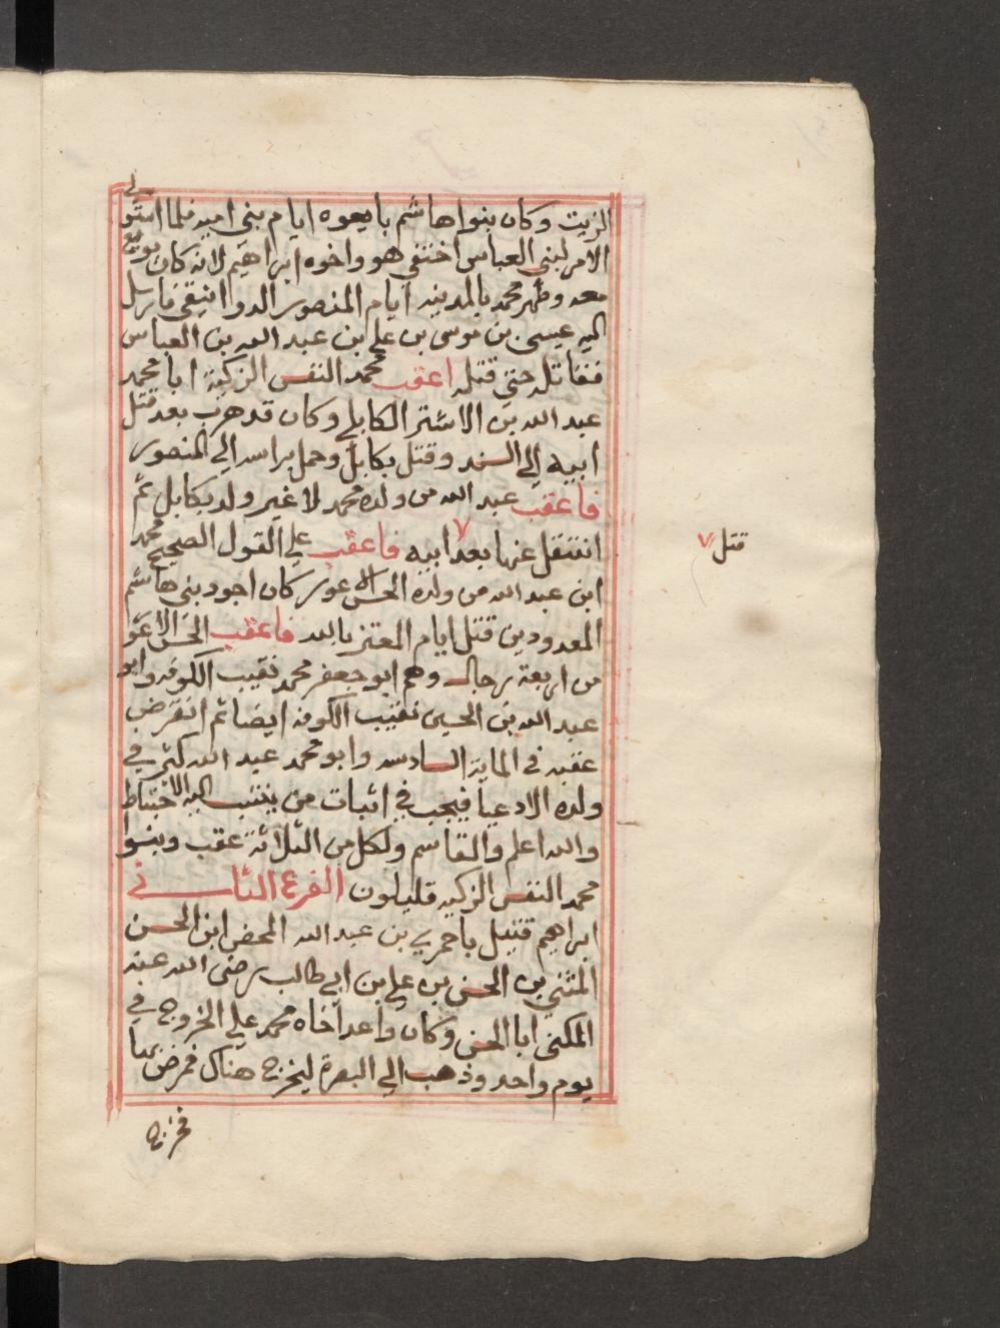 الزيت وكان بنوا هاشم بايعوه ايام بني اميه فلما استولى
الامر لبني العباس اختفي هو واخوه ابراهيم لانه كان بويع
معه وظهر محمد بالمدينه ايام المنصور الدوانيقي فارسل
اليه عيسى بن موسى بن علي بن عبد الله بن العباس
فقاتله حتي قتله اعقب محمد النفس الزكية ابا محمد
عبد الله بن الاشتر الكابلي وكان قد هرب بعد قتل
ابيه الي السند وقتل بكابل وحمل براسه الي المنصور
فاعقب عبد الله من ولده محمد لا غير ولد بكابل ثم
انتقل عنها بعد ٧ ابيه فاعقب علي القول الصحيح محمد
قتل ٧
ابن عبد الله من ولده الحسن الاعور كان اجود بني هاشم
المعدودين قتل ايام المعتز بالله فاعقب الحسن الاعور
من اربعة رجال وهم ابو جعفر محمد نقيب الكوفه وابو
عبد الله بن الحسين نقيب الكوفه ايضا ثم انقرض
عقبه في الماية السادسه وابو محمد عبد الله كثر في
ولده الادعيا فيجب في اثبات من ينتسب اليه الاحتياط
والله اعلم والقاسم ولكل من الثلاثة عقب وبنوا
محمد النفس الزكيه قليلون الفرع الثاني
ابراهيم قتيل باخمري بن عبد الله المحض ابن الحسن
المثني بن الحسن بن علي ابن ابي طالب رضى الله عنه
المكنى ابا الحسن وكان واعد اخاه محمد علي الخروج في
يوم واحد وذهب الي البصرة ليخرج هناك فمرض بها
فخرج